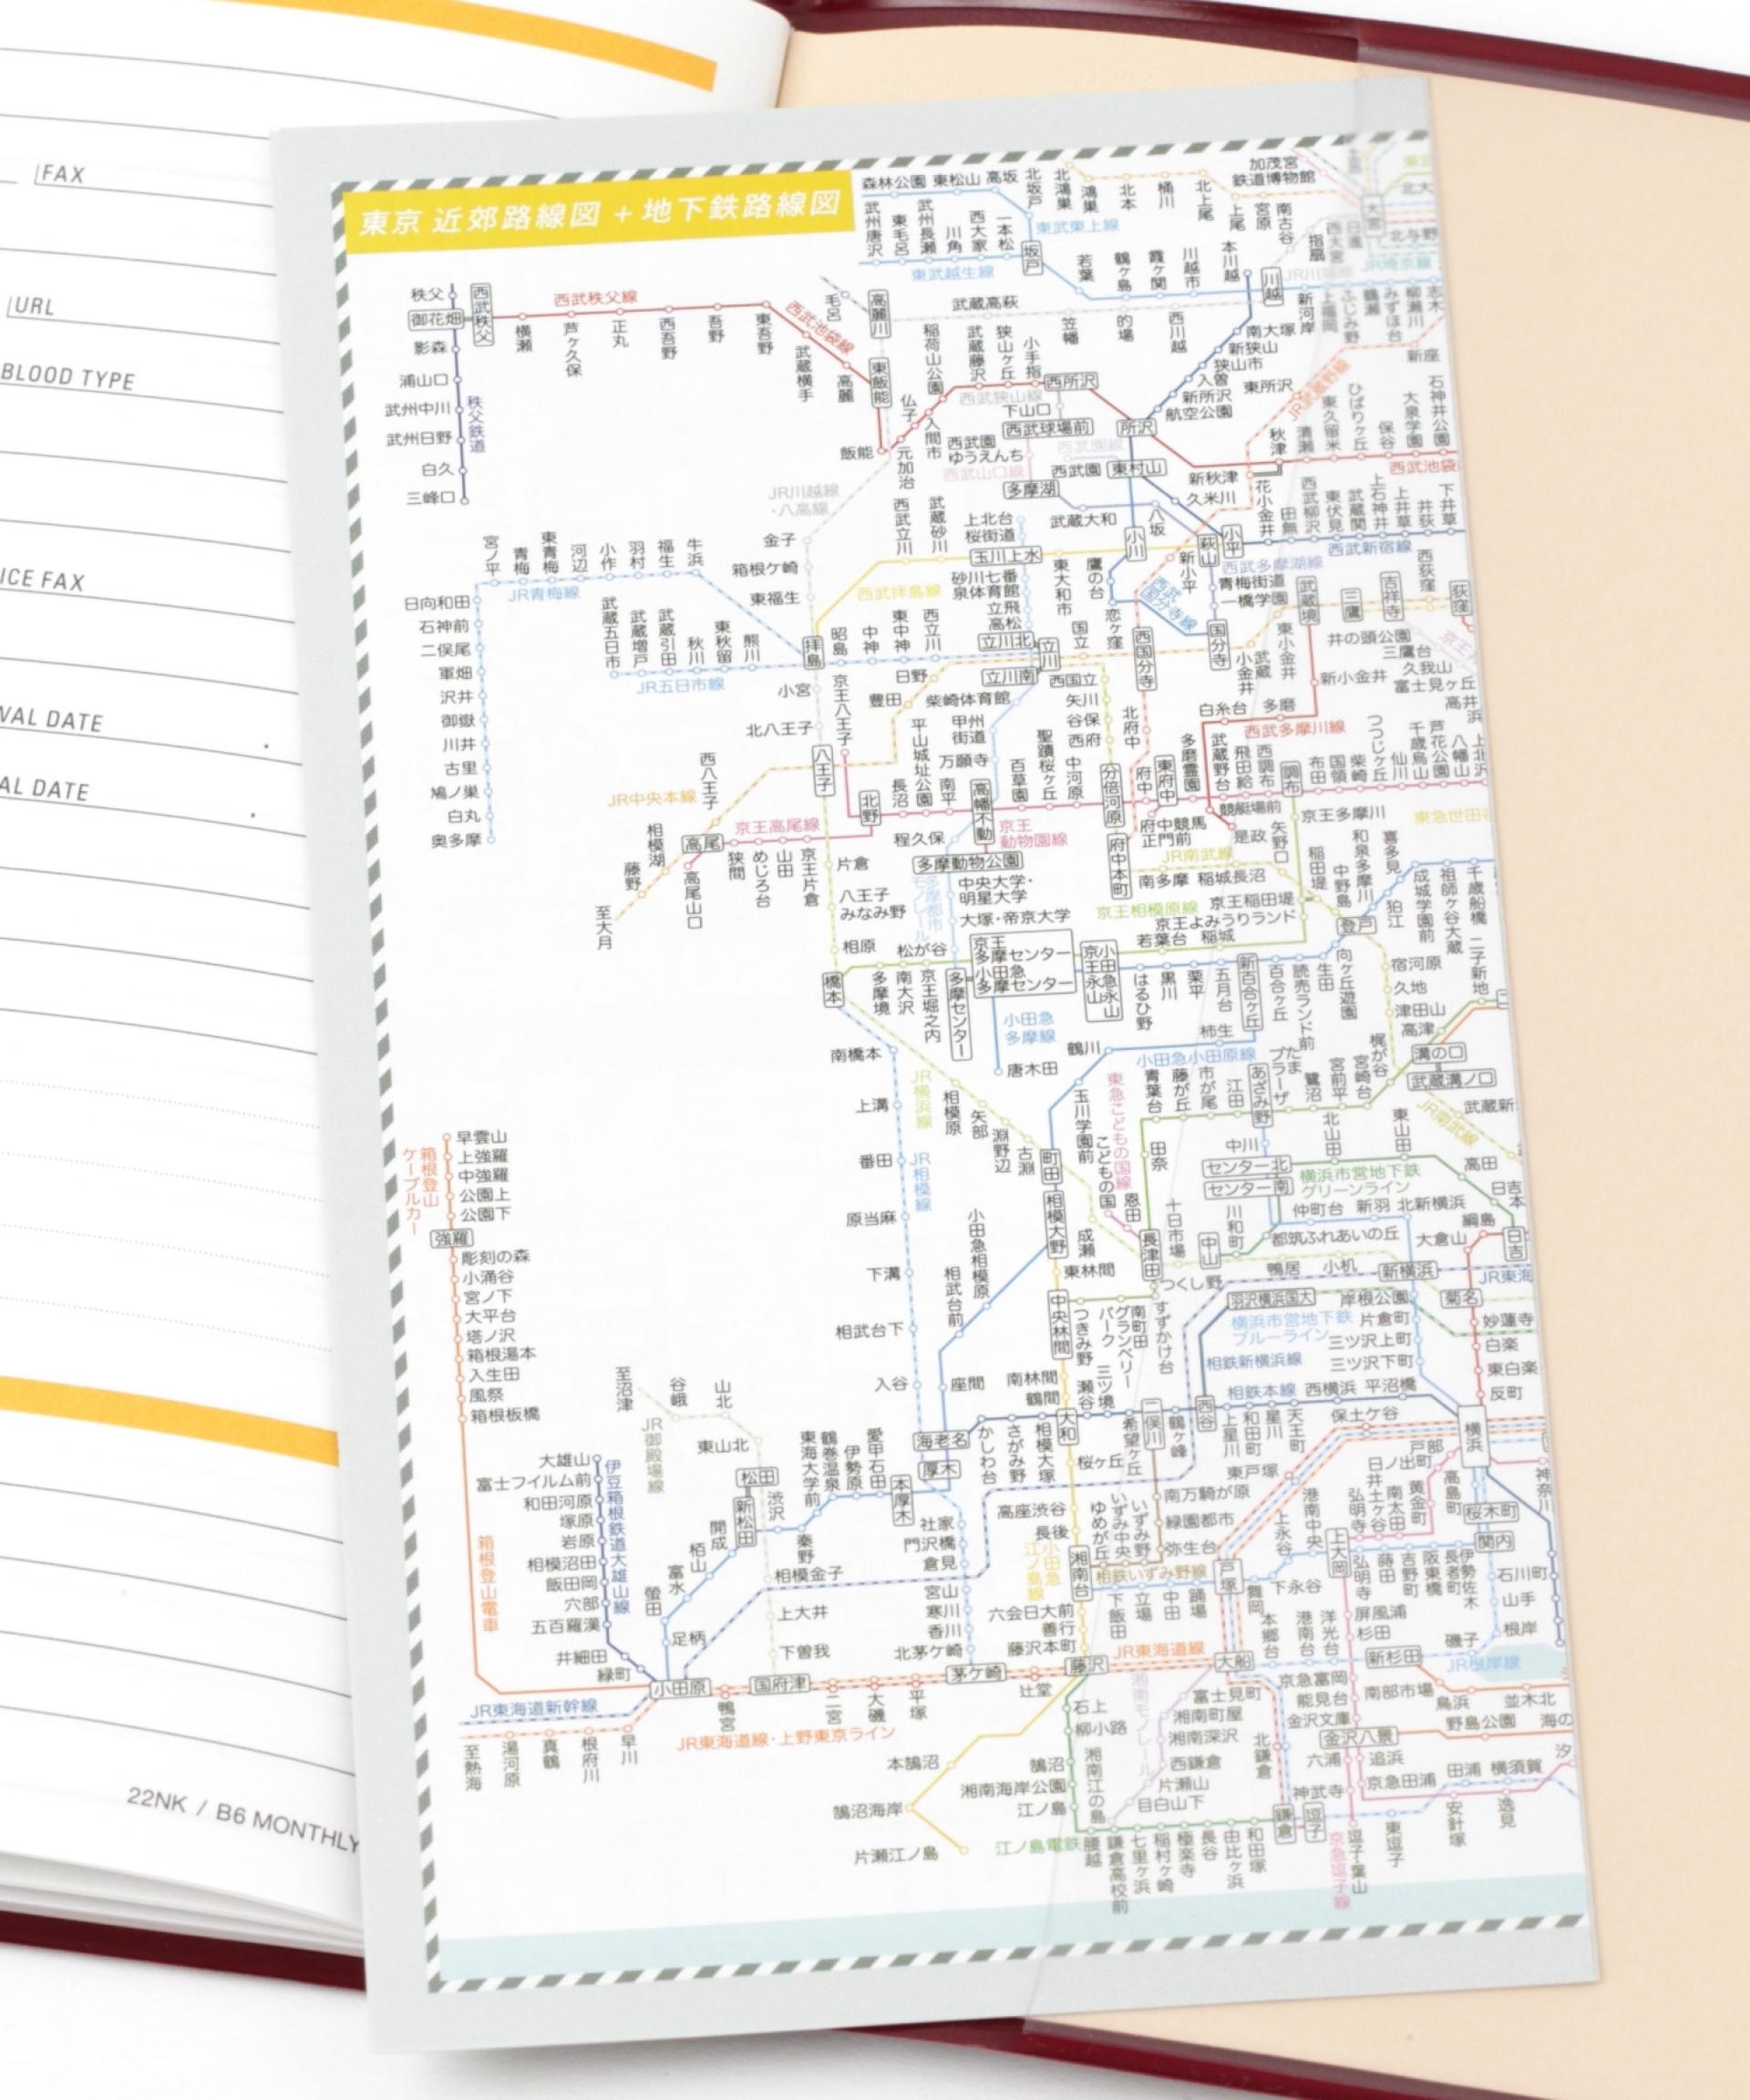 FAX
URL
BLOOD TYPE
ICE FAX
VAL DATE
AL DATE
22NK / B6 MONTHLY
東京 近郊路線図 + 地下鉄路線図
森林公園
東松山
高坂
北坂戸
北鴻巣
鴻巣
北本
桶川
北上尾
上尾
加茂宮
鉄道博物館
宮原
南古谷
指扇
西大宮
日進
大宮
北与野
武州唐沢
東毛呂
武州長瀬
川角
西大家
一本松
東武東上線
坂戸
東武越生線
若葉
鶴ヶ島
霞ヶ関
川越市
本川越
川越
JR川越線
JR埼京線
新河岸
上福岡
ふじみ野
鶴瀬
みずほ台
柳瀬川
志木
秩父
御花畑
西武秩父
影森
浦山口
武州中川
武州日野
白久
三峰口
秩父鉄道
西武秩父線
横瀬
芦ヶ久保
正丸
西吾野
吾野
東吾野
西武池袋線
武蔵横手
高麗
東飯能
飯能
毛呂
高麗川
武蔵高萩
笠幡
的場
西川越
稲荷山公園
武蔵藤沢
狭山ヶ丘
小手指
西所沢
仏子
入間市
元加治
西武狭山線
下山口
西武球場前
南大塚
新狭山
狭山市
入曽
新所沢
航空公園
所沢
東所沢
JR武蔵野線
新座
西武園
ゆうえんち
西武園線
西武山口線
西武園
東村山
多摩湖
秋津
新秋津
清瀬
東久留米
ひばりヶ丘
保谷
大泉学園
石神井公園
西武池袋
久米川
JR川越線
・八高線
金子
箱根ケ崎
東福生
西武立川
武蔵砂川
上北台
桜街道
玉川上水
武蔵大和
八坂
小川
萩山
小平
花小金井
田無
西武柳沢
東伏見
武蔵関
上石神井
上井草
井荻
下井草
西武新宿線
西武多摩湖線
宮ノ平
青梅
東青梅
河辺
小作
羽村
福生
牛浜
JR青梅線
日向和田
石神前
二俣尾
軍畑
沢井
御嶽
川井
古里
鳩ノ巣
白丸
奥多摩
武蔵五日市
武蔵増戸
武蔵引田
秋川
東秋留
熊川
JR五日市線
拝島
西武拝島線
昭島
中神
東中神
西立川
砂川七番
泉体育館
立飛
高松
立川北
立川
立川南
東大和市
鷹の台
恋ヶ窪
西武
国分寺線
新小平
青梅街道
一橋学園
国立
西国分寺
国分寺
武蔵小金井
東小金井
武蔵境
三鷹
吉祥寺
西荻窪
荻窪
井の頭公園
三鷹台
久我山
富士見ヶ丘
高井
新小金井
小宮
北八王子
京王八王子
八王子
日野
豊田
柴崎体育館
甲州
街道
万願寺
西国立
矢川
谷保
西府
北府中
白糸台
多磨
西武多摩川線
西八王子
JR中央本線
相模湖
藤野
至大月
高尾
高尾山口
京王高尾線
狭間
めじろ台
山田
京王片倉
北野
長沼
平山城址公園
南平
高幡不動
百草園
聖蹟桜ヶ丘
中河原
分倍河原
府中
東府中
多磨霊園
武蔵野台
飛田給
西調布
調布
布田
国領
柴崎
つつじヶ丘
仙川
千歳烏山
芦花公園
八幡山
競艇場前
京王多摩川
東急世田谷
程久保
京王
動物園線
多摩動物公園
府中本町
府中競馬
正門前
是政
矢野口
JR南武線
南多摩
稲城長沼
稲田堤
中野島
和泉多摩川
喜多見
片倉
八王子
みなみ野
多摩都市
モノレール
中央大学・
明星大学
大塚・帝京大学
京王相模原線
京王稲田堤
京王よみうりランド
若葉台
稲城
登戸
狛江
成城学園前
祖師ヶ谷大蔵
千歳船橋
相原
松が谷
京王
多摩センター
小田急
多摩センター
京王永山
小田急永山
橋本
多摩境
南大沢
京王堀之内
多摩センター
はるひ野
黒川
栗平
五月台
新百合ヶ丘
百合ヶ丘
読売ランド前
生田
向ヶ丘遊園
宿河原
久地
津田山
高津
二子新地
南橋本
小田急
多摩線
唐木田
鶴川
柿生
小田急小田原線
溝の口
武蔵溝ノ口
JR南武線
武蔵新
上溝
JR横浜線
相模原
矢部
淵野辺
古淵
玉川学園前
東急こどもの国線
こどもの国
恩田
青葉台
藤が丘
市が尾
江田
あざみ野
たまプラーザ
鷺沼
宮前平
宮崎台
梶が谷
番田
JR相模線
原当麻
下溝
相武台下
入谷
町田
相模大野
小田急相模原
相武台前
座間
成瀬
田奈
長津田
十日市場
中山
川和町
中川
センター北
センター南
北山田
東山田
横浜市営地下鉄
グリーンライン
高田
日吉本
仲町台
新羽
北新横浜
都筑ふれあいの丘
大倉山
綱島
日吉
東林間
つくし野
鴨居
小机
新横浜
JR東海
中央林間
つきみ野
グランベリーパーク
南町田
すずかけ台
羽沢横浜国大
岸根公園
菊名
横浜市営地下鉄
ブルーライン
片倉町
三ツ沢上町
三ツ沢下町
妙蓮寺
白楽
東白楽
反町
相鉄新横浜線
南林間
鶴間
相鉄本線
西横浜
平沼橋
早雲山
上強羅
中強羅
公園上
公園下
強羅
箱根登山
ケーブルカー
彫刻の森
小涌谷
宮ノ下
大平台
塔ノ沢
箱根湯本
入生田
風祭
箱根板橋
箱根登山電車
至沼津
JR御殿場線
谷峨
山北
東山北
松田
新松田
大雄山
富士フイルム前
和田河原
塚原
岩原
相模沼田
飯田岡
穴部
五百羅漢
井細田
緑町
伊豆箱根鉄道大雄山線
東海大学前
鶴巻温泉
伊勢原
愛甲石田
本厚木
渋沢
秦野
開成
栢山
富水
螢田
足柄
相模金子
上大井
下曽我
海老名
厚木
かしわ台
さがみ野
相模大塚
大和
瀬谷
三ツ境
希望ヶ丘
二俣川
鶴ヶ峰
西谷
上星川
和田町
星川
天王町
保土ケ谷
横浜
戸部
日ノ出町
桜ヶ丘
高座渋谷
長後
湘南台
小田急
江ノ島線
社家
門沢橋
倉見
宮山
寒川
香川
北茅ケ崎
ゆめが丘
いずみ中央
いずみ野
南万騎が原
緑園都市
弥生台
相鉄いずみ野線
東戸塚
戸塚
下飯田
立場
中田
踊場
舞岡
下永谷
上永谷
港南中央
上大岡
弘明寺
井土ケ谷
南太田
黄金町
高島町
桜木町
神奈川
関内
弘明寺
蒔田
吉野町
阪東橋
伊勢佐木
長者町
石川町
山手
根岸
磯子
JR根岸線
六会日大前
善行
藤沢本町
本郷台
港南台
洋光台
屏風浦
杉田
新杉田
小田原
鴨宮
国府津
二宮
大磯
平塚
茅ケ崎
辻堂
藤沢
JR東海道線
大船
JR東海道新幹線
JR東海道線・上野東京ライン
至熱海
湯河原
真鶴
根府川
早川
石上
柳小路
鵠沼
湘南海岸公園
江ノ島
湘南江の島
本鵠沼
鵠沼海岸
片瀬江ノ島
江ノ島電鉄
湘南モノレール
富士見町
湘南町屋
湘南深沢
西鎌倉
片瀬山
目白山下
北鎌倉
京急富岡
能見台
金沢文庫
金沢八景
南部市場
鳥浜
並木北
野島公園
海の
六浦
追浜
神武寺
京急田浦
田浦
横須賀
汐
安針塚
逸見
腰越
鎌倉高校前
七里ヶ浜
稲村ヶ崎
極楽寺
長谷
由比ヶ浜
和田塚
鎌倉
逗子
京急逗子線
逗子・葉山
東逗子